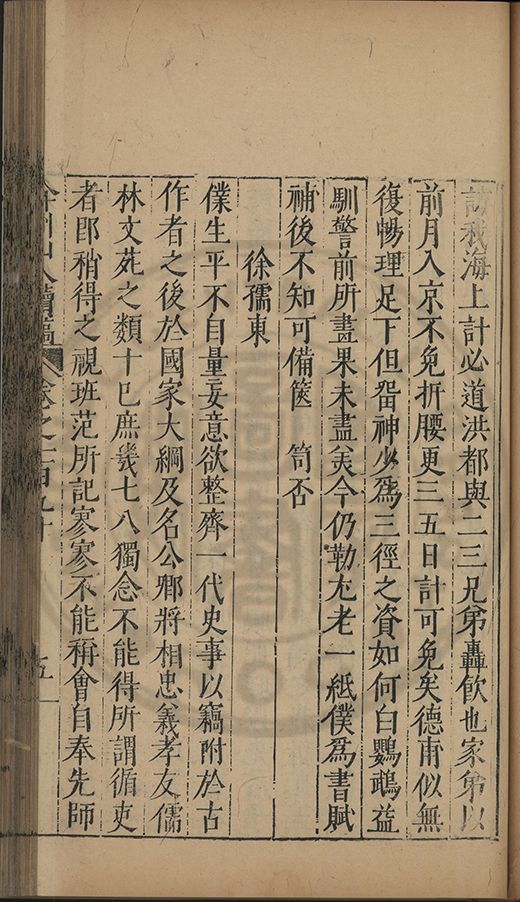 訪我海上計必道洪都與二三兄弟轟飲也家弟以
前月入京不免折腰更三五日計可免矣德甫似無
復暢理足下但畱神少爲三徑之資如何白鸚鵡益
馴警前所畫果未盡矣今仍勒尤老一紙僕爲書賦
補後不知可備篋笥否
徐孺東
僕生平不自量妄意欲整齊一代史事以竊附於古
作者之後於國家大綱及名公卿將相忠義孝友儒
林文苑之類十巳庶幾七八獨念不能得所謂循吏
者卽稍得之視班范所記寥寥不能稱會自奉先師
弇州山人續稿 卷之一百九十 五